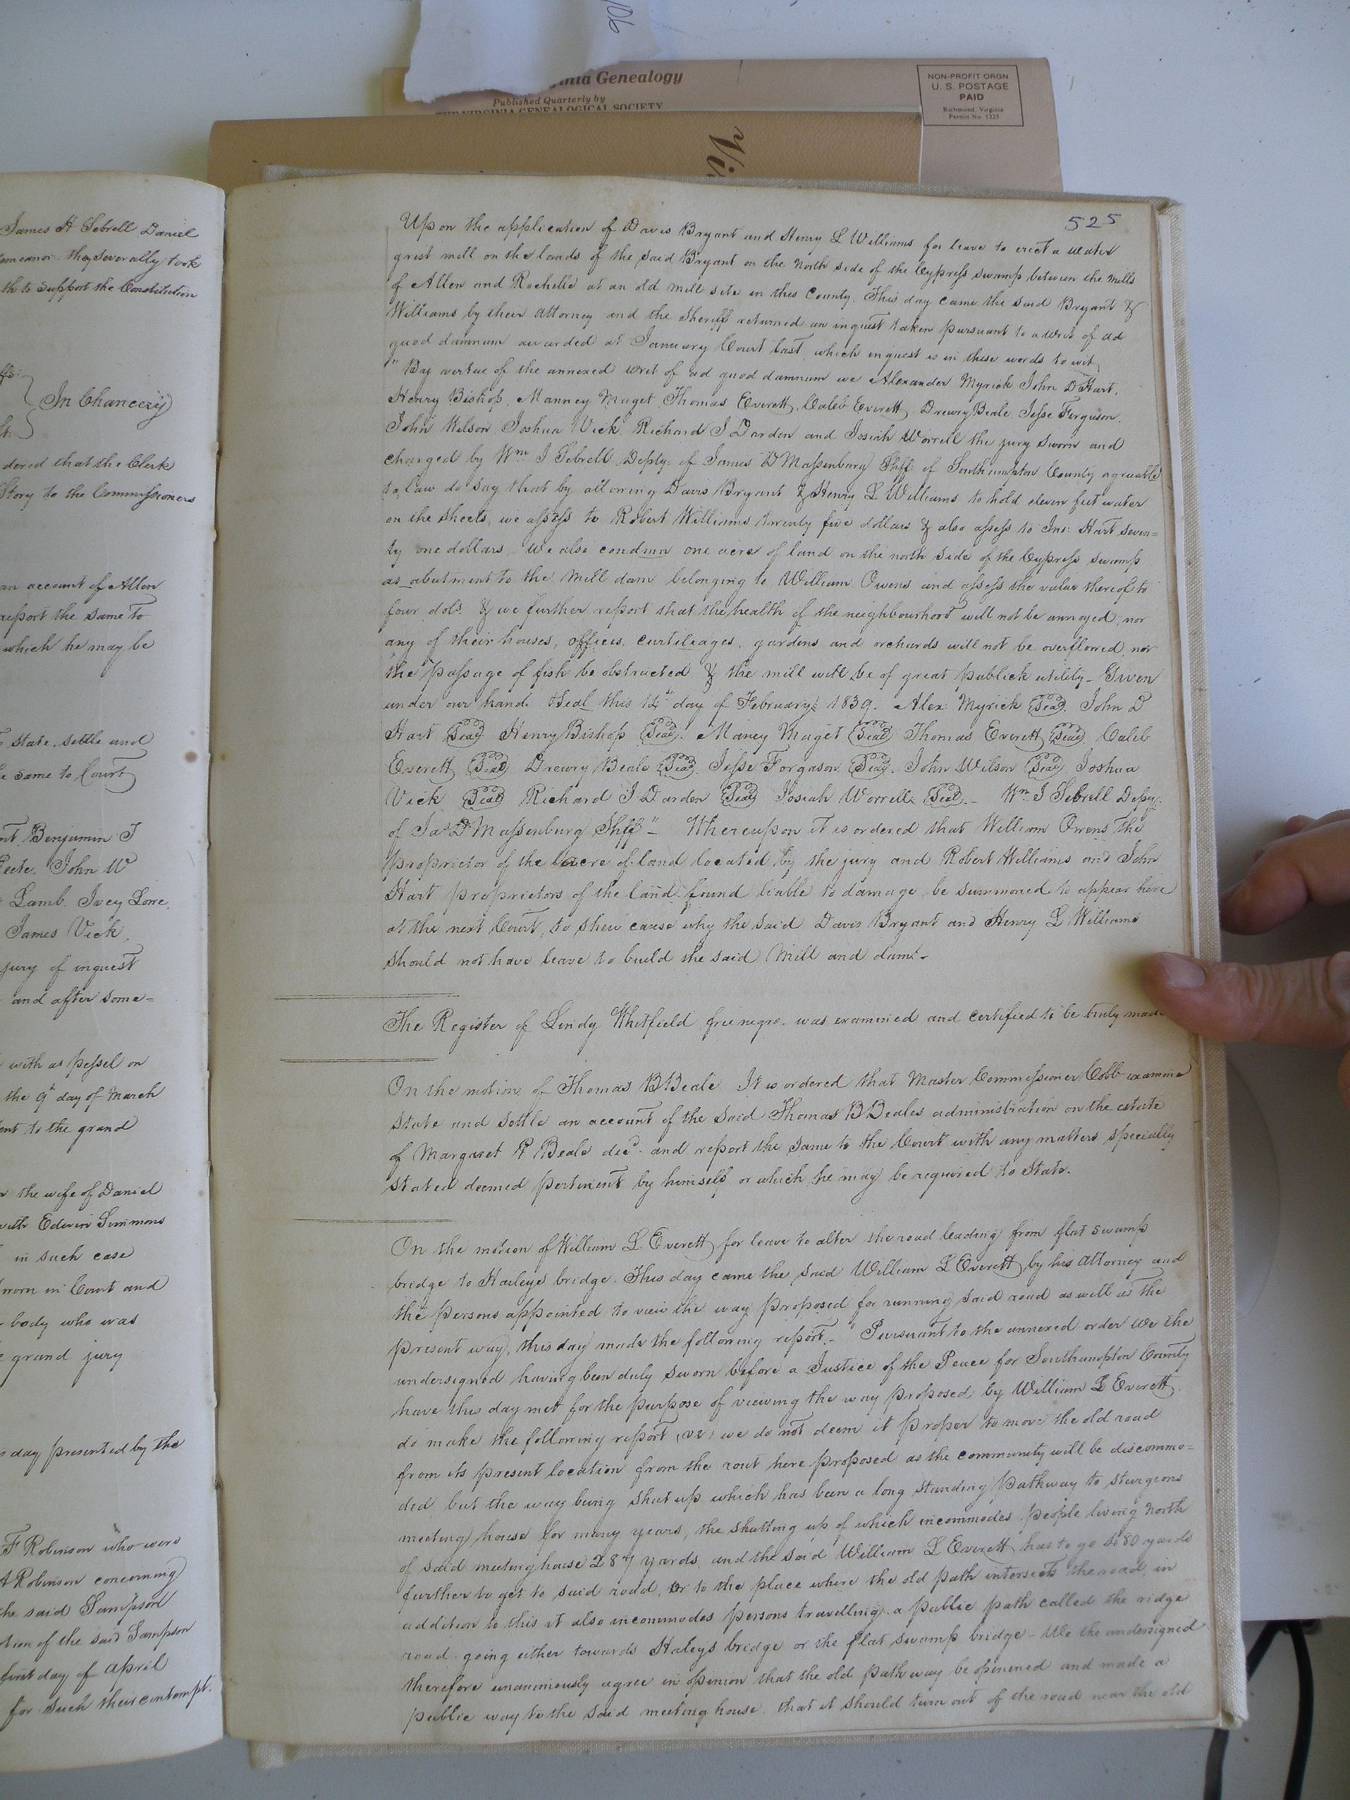 106
Virginia Genealogy
Published Quarterly by
THE VIRGINIA GENEALOGICAL SOCIETY
NON-PROFIT ORGN
U. S. POSTAGE
PAID
Richmond, Virginia
Permit No. 1325
Vi
James H Sebrell Daniel
they severally took
to support the Constitution
In Chancery
dered that the Clerk
Story to the Commissioners
an account of Allen
report the same to
which he may be
state, settle and
same to Court
Benjamin T
John W
Lamb Ivey Lane
James Vick
jury of inquest
and after some-
with as pessel on
the 9th day of March
ent to the grand
the wife of Daniel
with Edwin Simmons
in such case
sworn in Court and
body who was
grand jury
day presented by the
F Robinson who were
Robinson concerning
the said Sampson
tion of the said Sampson
first day of April
for such their contempt.
525
Upon the application of Davis Bryant and Henry L Williams for leave to erect a water
grist mill on the lands of the said Bryant on the North side of the Cypress swamp between the mills
of Allen and Rochelle at an old mill site in this County. This day came the said Bryant &
Williams by their attorney and the Sheriff returned an inquest taken pursuant to a writ of ad
quod damnum awarded at January Court last, which inquest is in these words to wit,
" By virtue of the annexed writ of ad quod damnum we Alexander Myrick John D Hart,
Henry Bishop, Manney Muget, Thomas Everett, Caleb Everett, Drewry Beale, Jesse Ferguson,
John Wilson Joshua Vick Richard J Darden and Josiah Worrell the jury sworn and
charged by Wm J Sebrell Depty. of James D Massenburg Shff of Southampton County agreeable
to Law do say that by allowing Davis Bryant & Henry L Williams to hold eleven feet water
on the sheets, we assess to Robert Williams twenty five dollars & also assess to Jno: Hart seven-
ty one dollars. We also condmn one acre of land on the north side of the Cypress swamp
as abutment to the mill dam belonging to William Owens and assess the value thereof to
four dols. & we further report that the health of the neighbourhood will not be annoyed, nor
any of their houses, offices, curtileages, gardens and orchards will not be overflowed nor
the passage of fish be obstructed & the mill will be of great publick utility- Given
under our hand & Seal this day of February 1839. Alex Myrick Seal. John D
Hart Seal Henry Bishop Seal. Maney Muget Seal Thomas Everett Seal Caleb
Everett Seal Drewry Beale Seal. Jesse Forgason Seal. John Wilson Seal Joshua
Vick Seal Richard J Darden Seal Josiah Worrell Seal.- Wm J Sebrell Depy:
of Jas D Massenburg Shff"- Whereupon it is ordered that William Owens the
proprietor of the acre of land located by the jury and Robert Williams and John
Hart proprietors of the land found liable to damage be summoned to appear here
at the next Court, to shew cause why the said Davis Bryant and Henry L Williams
should not have leave to build the said Mill and dam.-
The Register of Lindy Whitfield free negro. was examined and certified to be truly made
On the motion of Thomas B Beale It is ordered that Master Commissioner Cobb examine
state and settle an account of the said Thomas B Beales administration on the estate
of Margaret Beale decd. and report the same to the Court with any matters specially
stated deemed pertinent by himself or which he may be required to State.
On the motion of William L Everett for leave to alter the road leading from flat swamp
bridge to Haileys bridge. This day came the said William L Everett by his attorney and
the persons appointed to view the way proposed for running said road as well as the
present way, this day made the following report.- " Pursuant to the annexed order We the
undersigned having been duly sworn before a Justice of the Peace for Southampton County
have this day met for the purpose of viewing the way proposed by William L Everett
do make the following report we do not deem it proper to move the old road
from its present location from the rout here proposed as the community will be discommo-
ded but the way being shut up which has been a long standing Pathway to sturgeons
meeting house for many years, the shutting up of which incommodes people living North
of said meeting house 287 yards and the said William L Everett has to go 580 yards
further to get to said road, or to the place where the old path intersects the road, in
addition to this it also incommodes persons travelling a public path called the ridge
road going either towards Haleys bridge or the flat swamp bridge- We the undersigned
therefore unanimously agree in opinion that the old path way be openened and made a
public way to the said meeting house that it should turn out of the road near the old